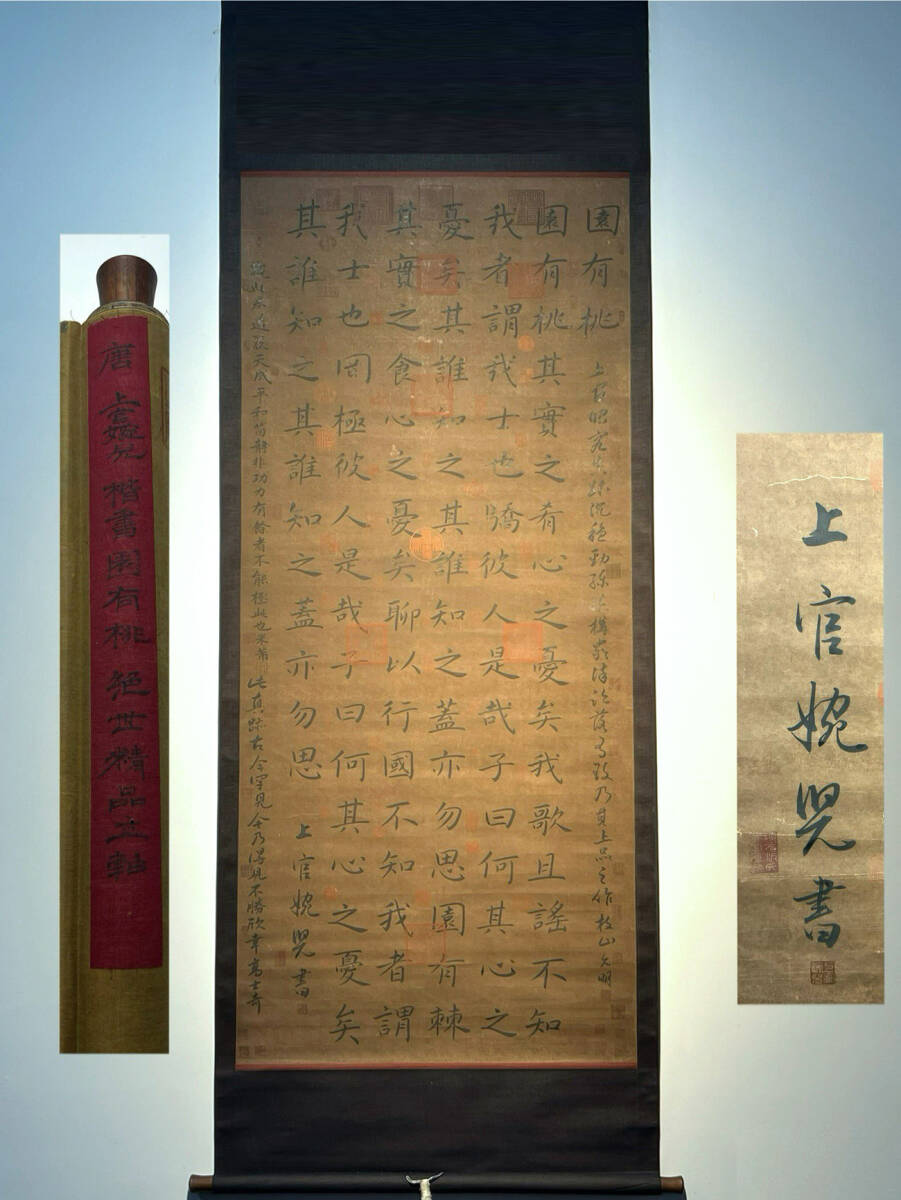 園有桃
上官昭容 沉穩勁 乃 上品之作枝山允明
園有桃其實之肴心之憂矣我歌且謠不知
我者謂我士也驕彼人是哉子曰何其心之
憂矣其誰知之其誰知之蓋亦勿思園有棘
其實之食心之憂矣聊以行國不知我者謂
我士也罔極彼人是哉子曰何其心之憂矣
其誰知之其誰知之蓋亦勿思
上官婉兒書
此 天成平和簡靜非功力有餘者不能極此也米芾
此真跡古今罕見今乃得見不勝欣幸高士奇
唐上官婉兒楷書園有桃絕世精品立軸
上官婉兒書